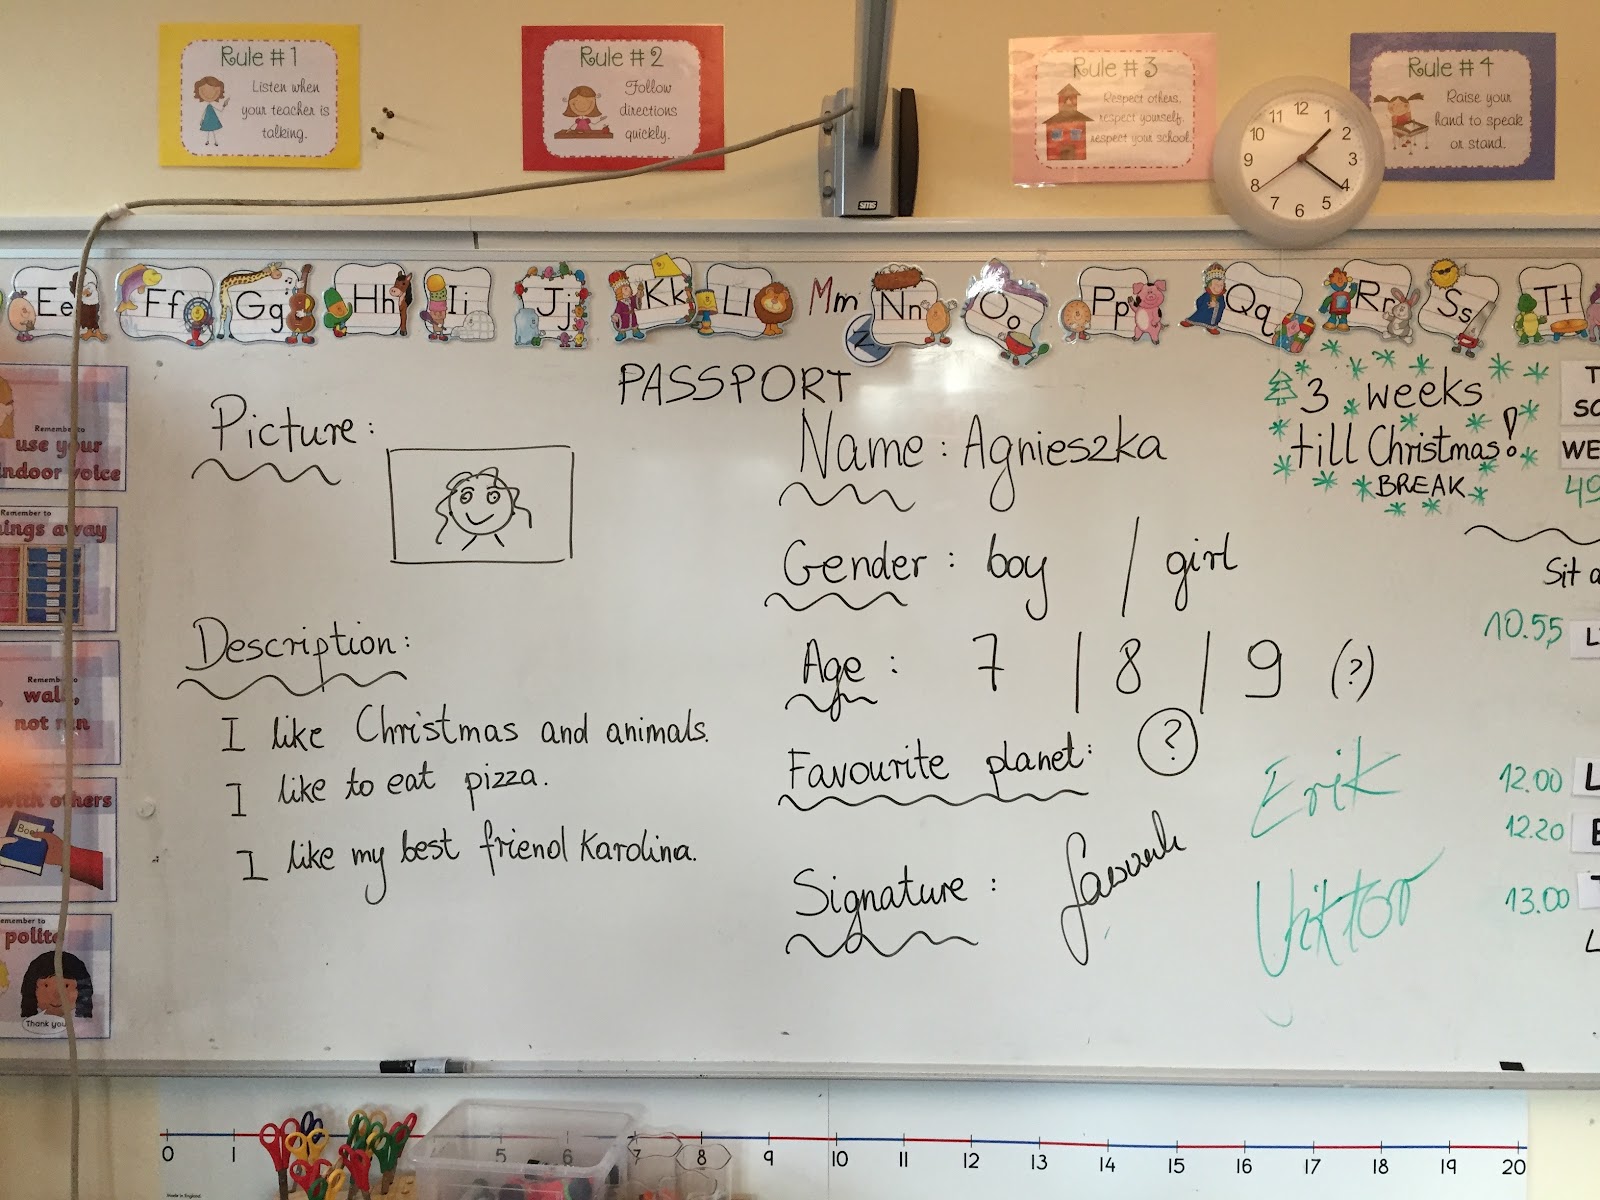 Rule #1
Listen when
your teacher is
talking.
Rule #2
Follow
directions
quickly.
Rule #3
Respect others,
respect yourself,
respect your school.
Rule #4
Raise your
hand to speak
or stand.
12
1
2
3
4
5
6
7
8
9
10
11
Ee Ff Gg Hh Ii Jj Kk Ll Mm Nn Oo Pp Qq Rr Ss Tt
PASSPORT
Picture:
Name: Agnieszka
Gender: boy / girl
Age: 7 / 8 / 9 (?)
Favourite planet: ?
Signature:
Erik
Viktor
Description:
I like Christmas and animals.
I like to eat pizza.
I like my best friend Karolina.
3 weeks
till Christmas!
BREAK
WE
Sit a
10.55
12.00
12.20
13.00
Remember to
use your
indoor voice
Remember to
ings away
Remember to
walk,
not run
with others
Book
emember to
polite
Thank you
0 1 5 6 7 8 9 10 11 12 13 14 15 16 17 18 19 20
Made in England